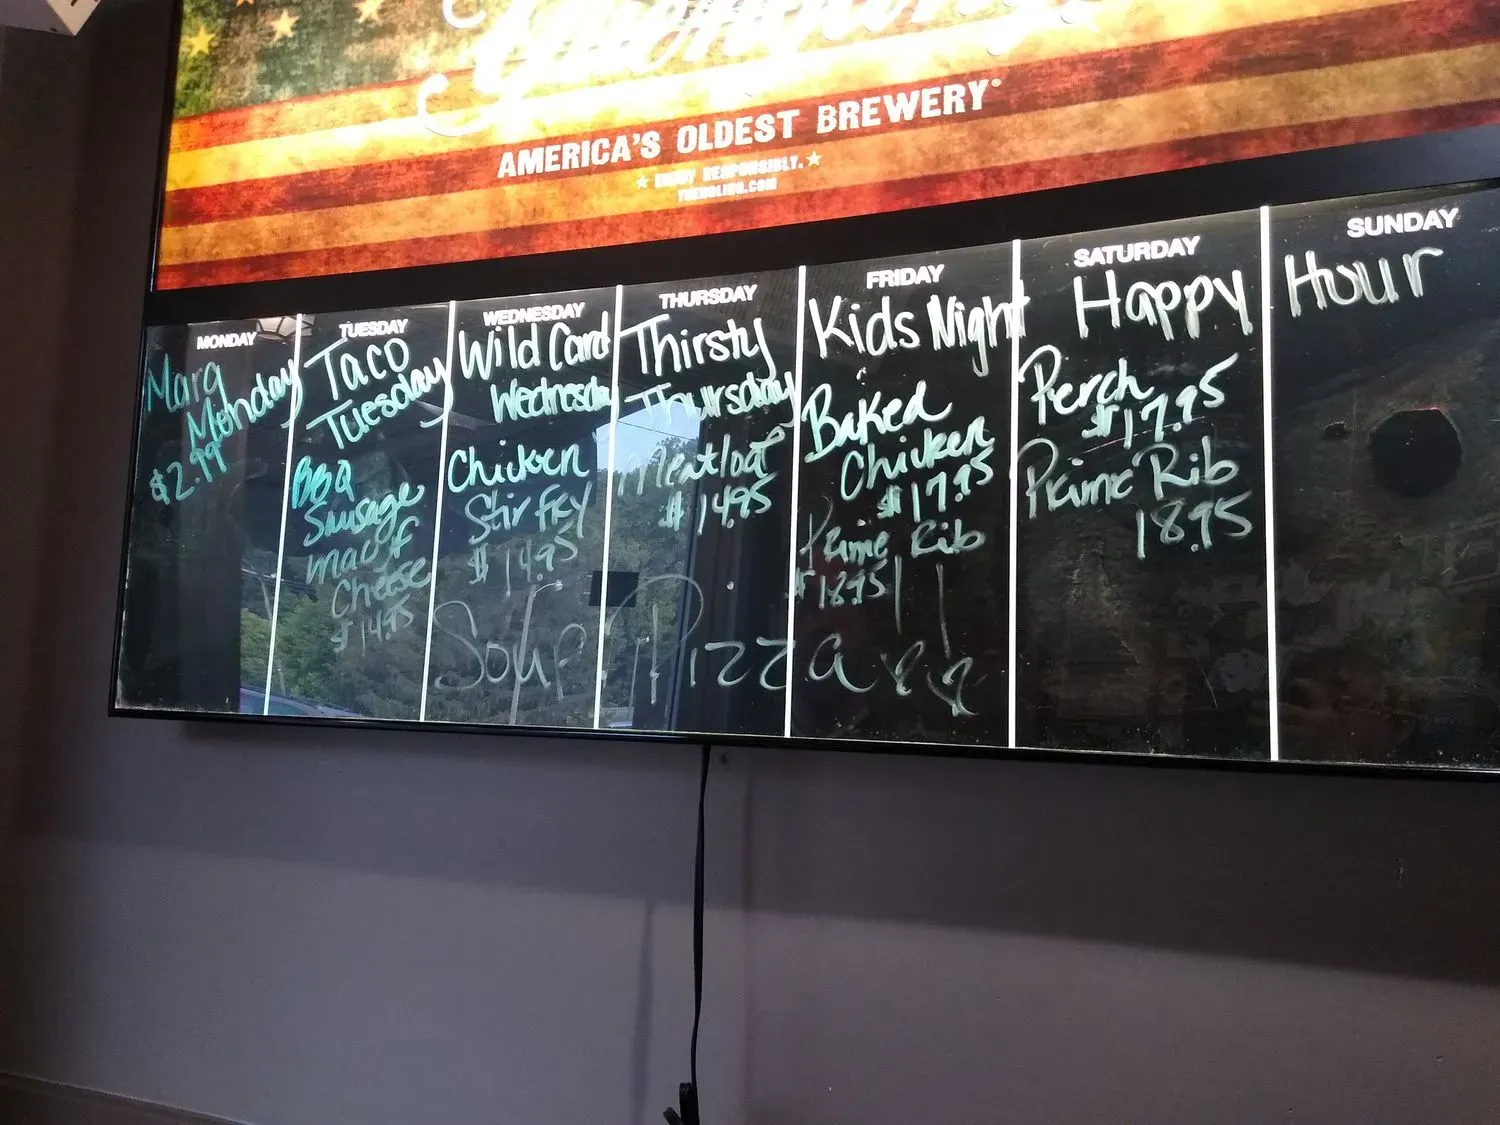 Yuengling
AMERICA'S OLDEST BREWERY®
ENJOY RESPONSIBLY.
YUENGLING.COM
MONDAY
Marg
Monday
$2.99
TUESDAY
Taco
Tuesday
BBQ
Sausage
mac &
Cheese
$14.95
WEDNESDAY
Wild Card
Wednesday
Chicken
Stir Fry
$14.95
THURSDAY
Thirsty
Thursday
Meatloaf
$14.95
FRIDAY
Kids Night
Baked
Chicken
$17.95
Prime Rib
$18.95
SATURDAY SUNDAY
Happy Hour
Perch
$17.95
Prime Rib
18.95
Soup Pizza